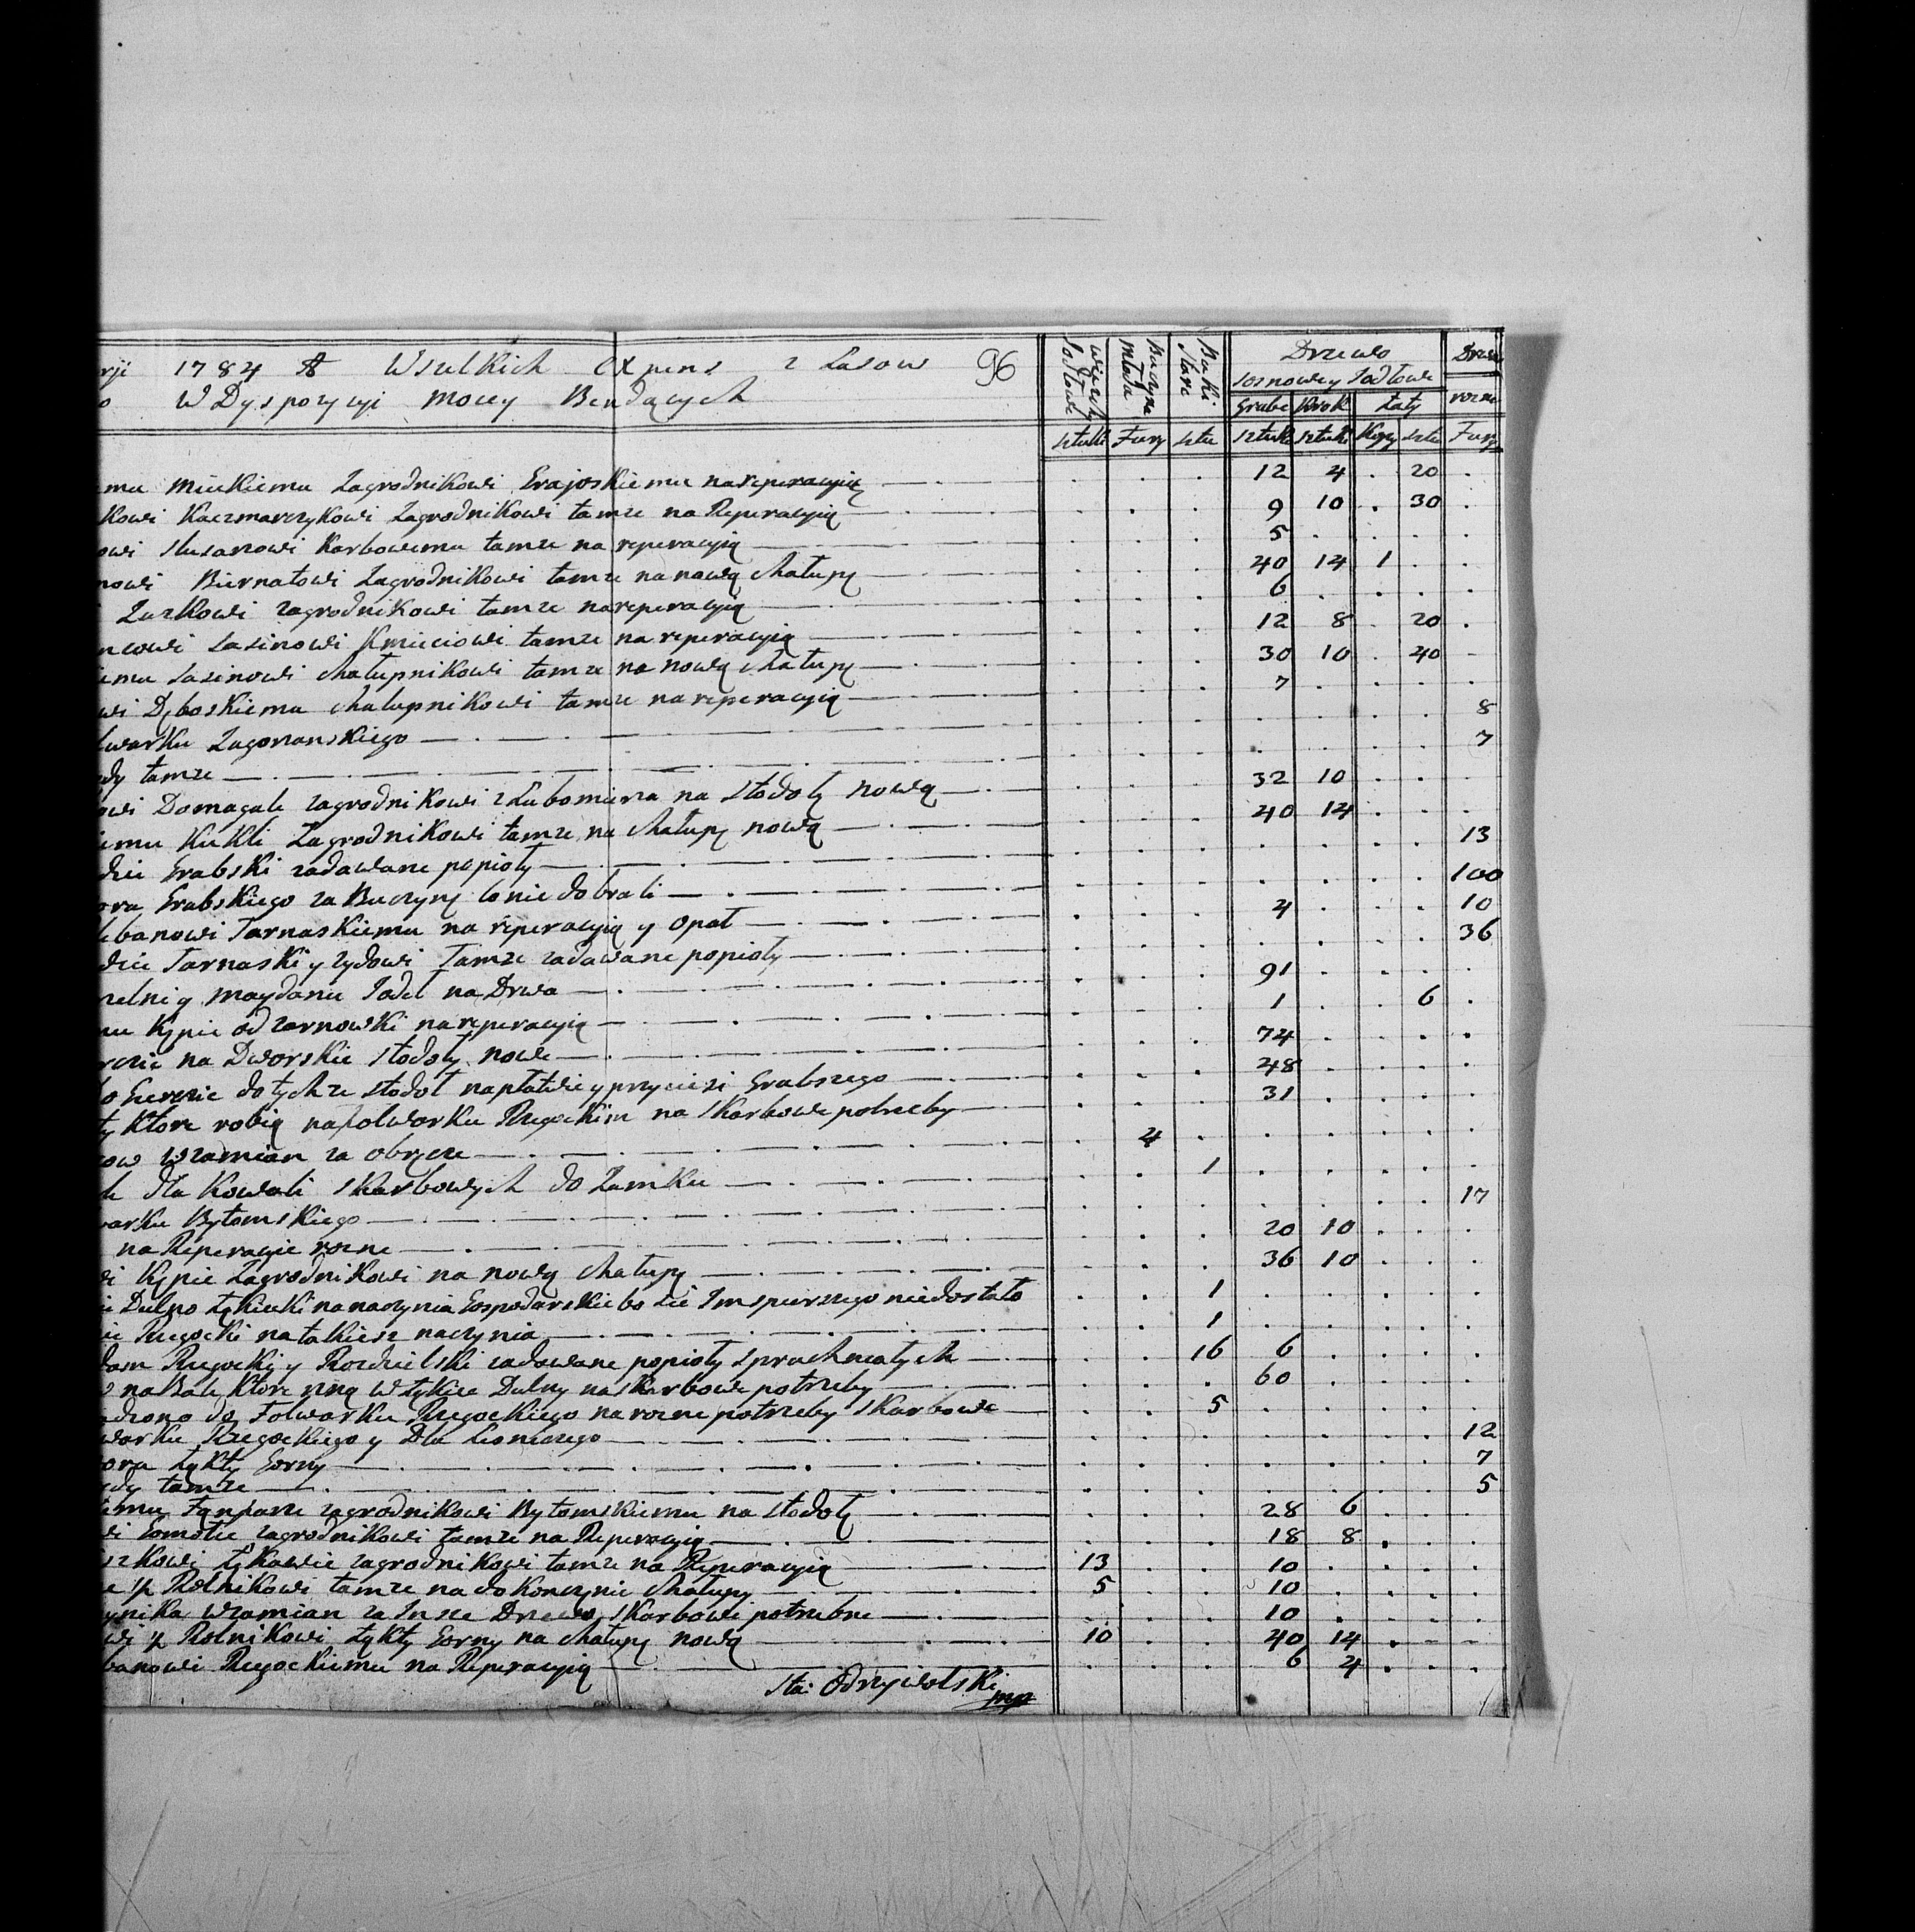 rji 1784 A Wszelkich Expens z Lasow 96
o W Dyspozycyi mocey Bendących
wiązek Jodłowe
Buczyna młoda
Buki stare
Drzewo
Drwa
sosnowe y Jodłowe
rozne
Grube Krok Łaty
sztuki Fury sztu sztuki sztuki Kopy sztu Fury
emu Miukiemu Zagrodnikowi Grajoskiemu na reperacyią 12 4 . 20 .
kowi Kaczmarczykowi Zagrodnikowi tamze na Reperacyią 9 10 . 30 .
owi slusarowi Karbowemu tamze na reperacyią 5
nowi Biernatowi Zagrodnikowi tamze na nową chałupę 40 14 1 . .
Zuzkowi zagrodnikowi tamze na reperacyią 6
ncowi Lasinowi Kmieciowi tamze na reperacyią 12 8 . 20 .
emu Lasinowi chałupnikowi tamze na nową chałupę 30 10 . 40
wi Dęboskiemu chałupnikowi tamze na reperacyią 7
lwarku Zagorzanskiego 8
ody tamze 7
owi Domagale zagrodnikowi z Lubomierza na stodołę nową 32 10
emu Kukli Zagrodnikowi tamze na chałupę nową 40 14
dzie Grabski zadawane popioły 13
ora Grabskiego za Buczynę co nie dobrali 100
lebanowi Tarnaskiemu na reperacyią y opał 4 10
dzie Tarnaski y zydowi Tamze zadawane popioły 36
zelni y maydanu Jodeł na Drwa 91
mu Kępie od zarnowki na reperacyią 1 . . 6 .
rcie na Dworskie stodoły nowe 74
o Gurczie do tychze stodoł na płatwie y przyciesi Grabszego 48
ty Ktore robią na folwarku Rzegockim na skarbowe potrzeby 31
ow w zamian za obręcze 4
k dla Kowali skarbowych do Zamku 1
warku Bytomskiego 17
na Reperacyie rozne 20 10
i Kępie Zagrodnikowi na nową chałupę 36 10
i Dulpo Łękiecki na naczynia Gospodarskie bo sie Im spierszego niedostało 1
ie Rzegocki na takiesz naczynia 1
dam Rzegocki y Rozdzielski zadawane popioły spruchniałych 16 6
w na Bale Ktore rzną w Łękice Dulny na skarbowe potrzeby 60
adzono do Folwarku Rzegockiego na rozne potrzeby skarbowe 5
warku Rzegockiego y Dla Lesniczego 12
ora Łękty Gorny 7
ody tamze 5
emu Fąnfarze zagrodnikowi Bytomskiemu na stodołę 28 6
wi Gomołce zagrodnikowi tamze na Reperacyią 18 8
szkowi Łękawie zagrodnikowi tamze na Reperacyią 13 10
e ½ Rolnikowi tamze na dokonczynie chałupy 5 10
ynika w zamian za Insze Drzewo skarbowi potrzebne 10
wi ½ Rolnikowi Łękty Gorny na chałupę nową 10 40 14
banowi Rzegockiemu na Reperacyią 6 4
Sta: Odrzywolski mp